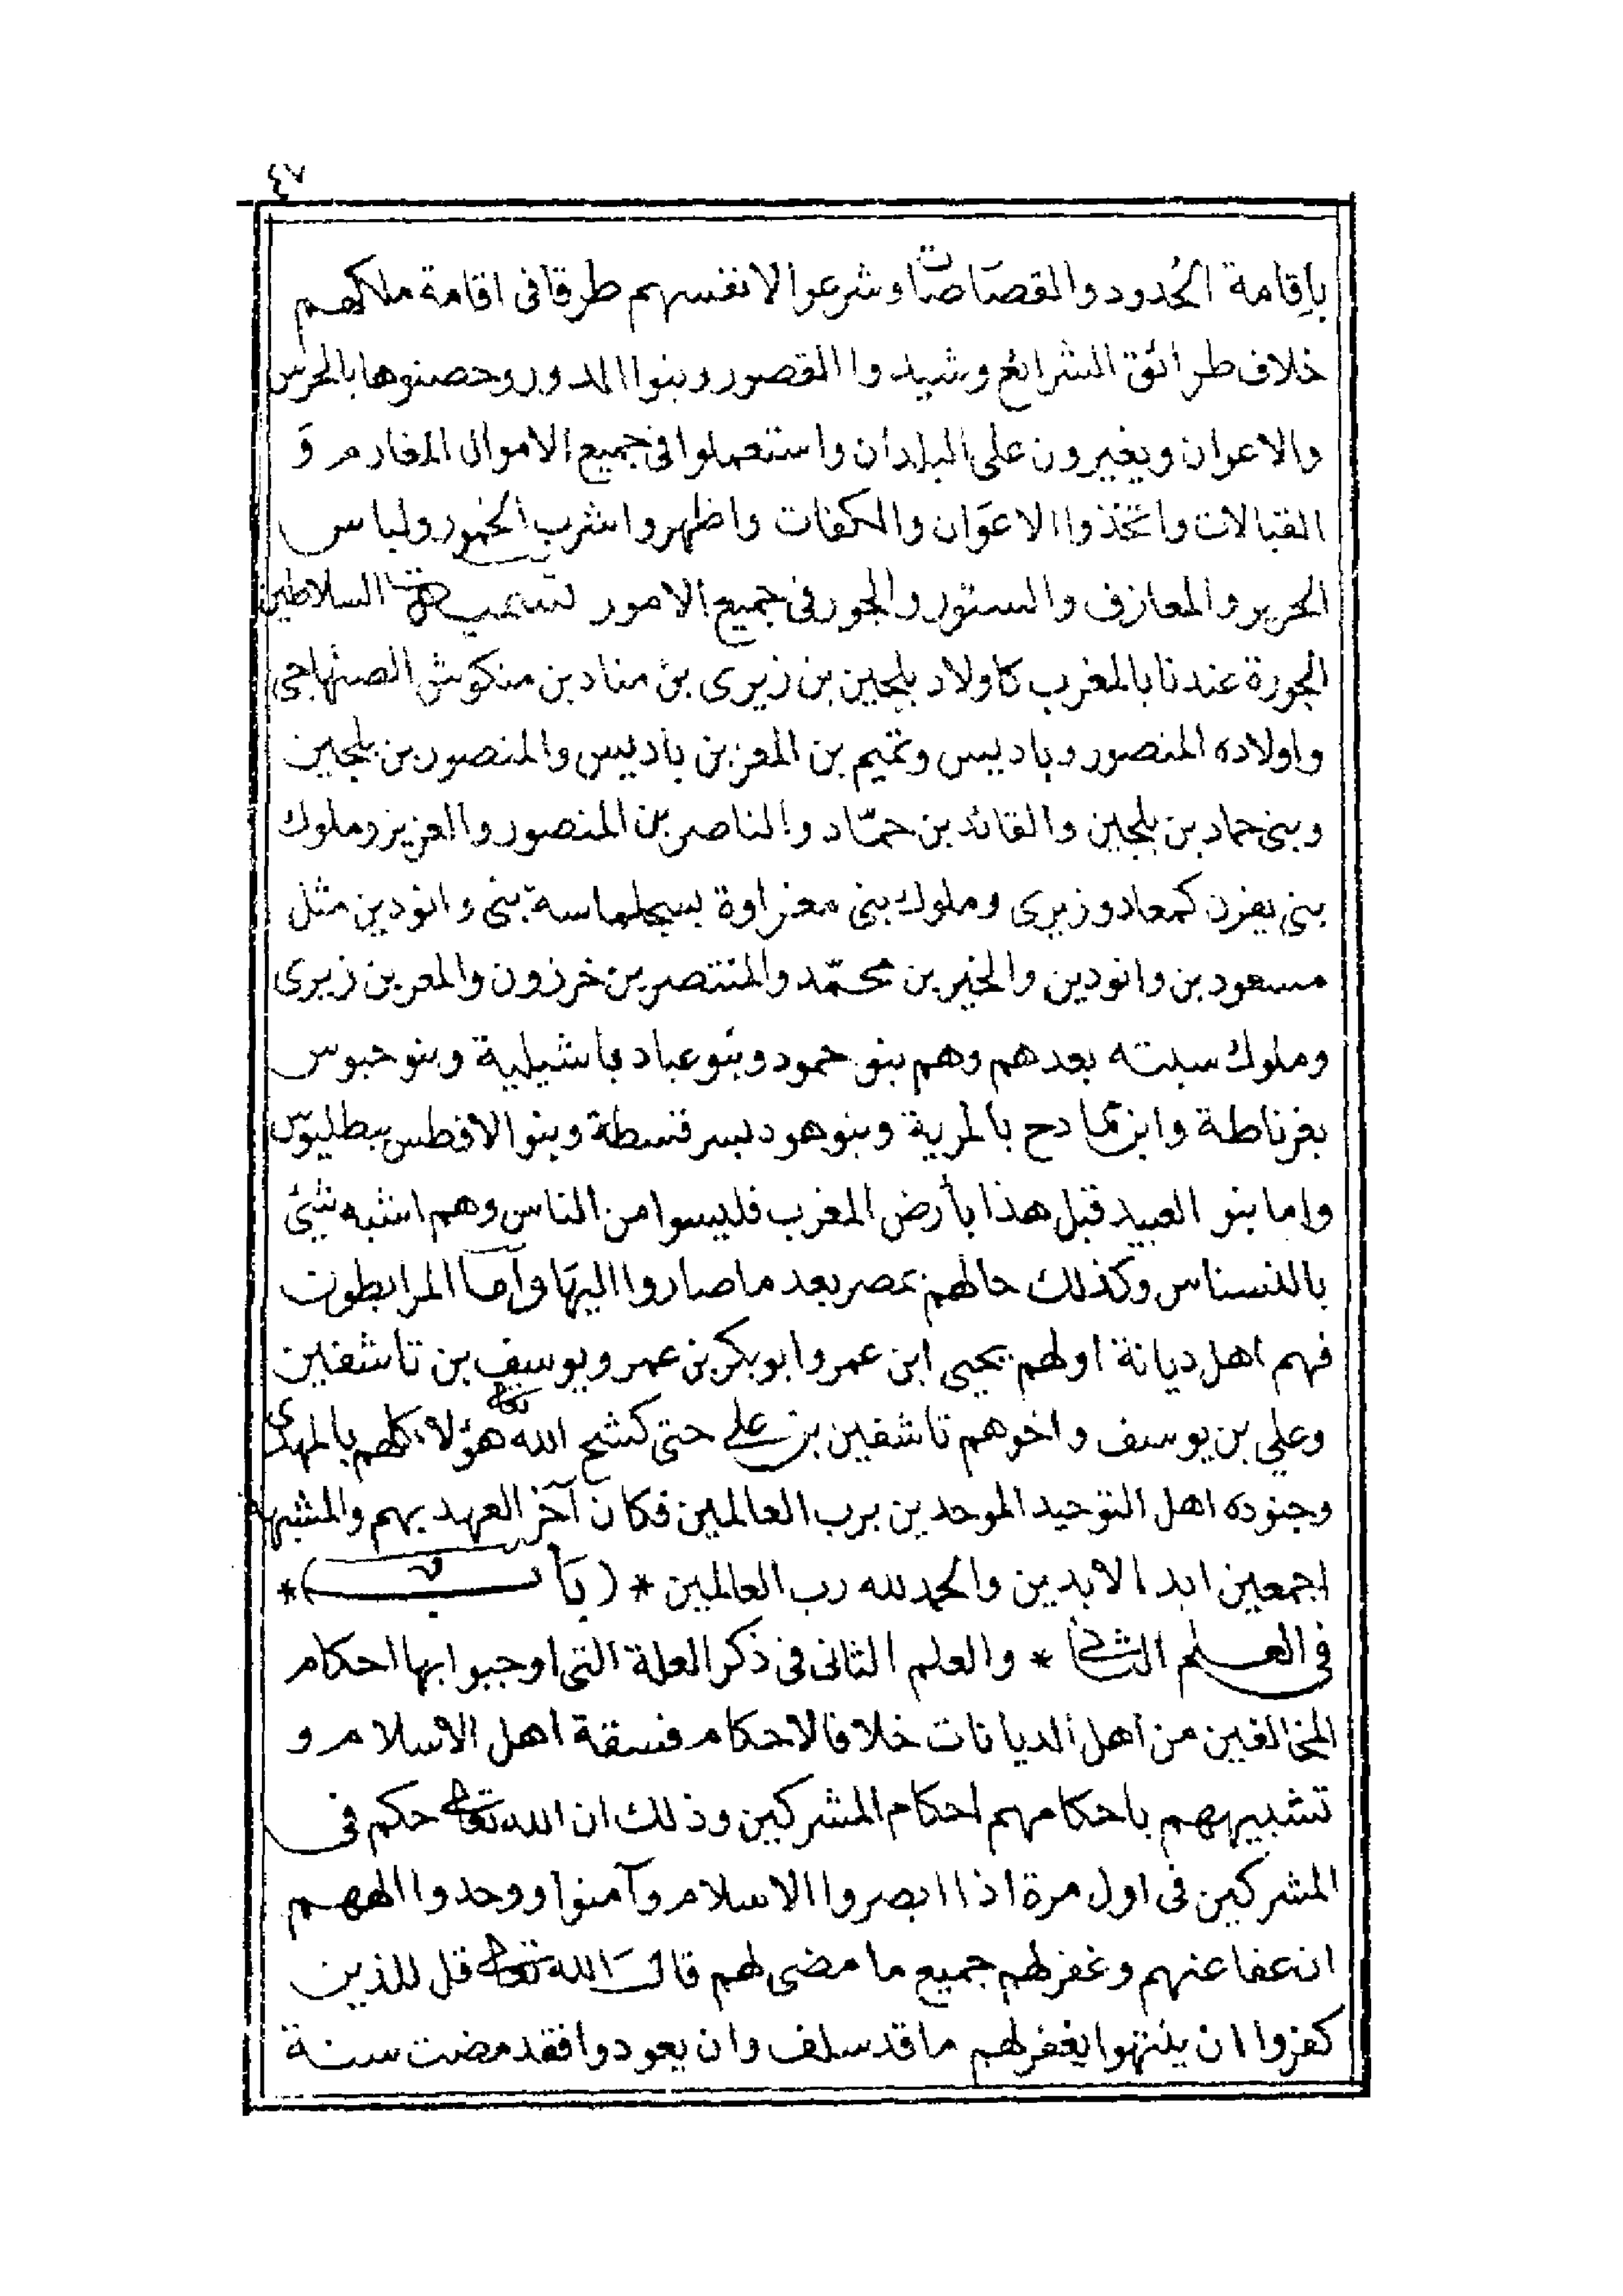 ٤٧
بإقامة الحُدود والقصَاصَات وشرعوا لانفسهم طرقا فى اقامة ملكهم
خلاف طرائق الشرائع وشيدوا القصور وبنوا الدور وحصنوها بالحرس
والاعوان ويغيرون على البلدان واستعملوا فى جميع الاموال المغارم وَ
القبالات واتخذوا الاعوَان والكفات واظهروا شرب الخمور ولباس
الحرير والمعازف والستور والجور فى جميع الامور السلاطين
الجورة عندنا بالمغرب كاولاد بلجين بن زيرى بن مناد بن منكوش الصنهاجى
واولاده المنصور وباديس وتميم بن المعز بن باديس والمنصور بن بلجين
وبنى حماد بن بلجين والقائد بن حمّاد والناصر بن المنصور والعزيز وملوك
بنى يفرن كمعاد وزيرى وملوك بنى مغراوة بسجلماسة بنى وانودين مثل
مسعود بن وانودين والخير بن محمّد والمنتصر بن خرزون والمعز بن زيرى
وملوك سبته بعدهم وهم بنو حمود وبنو عباد باشيلية وبنو حبوس
بغرناطة وابن صمادح بالمرية وبنو هود بسرقسطة وبنو الافطس ببطليوس
واما بنو العبيد قبل هذا بأرض المغرب فليسوا من الناس وهم اشبه شئ
بالنسناس وكذلك حالهم بمصر بعد ما صاروا اليهَا وأما المرابطون
فهم اهل ديانة اولهم يحيى ابن عمر وابو بكر بن عمر ويوسف بن تاشفين
وعلي بن يوسف واخوهم تاشفين بن علي حتى كشح الله تعالى هؤلاء كلهم بالمهدى
وجنوده اهل التوحيد الموحدين برب العالمين فكان آخر العهد بهم والمشبهة
اجمعين ابد الابدين والحمد لله رب العالمين * (بَأب) *
فى العلم الثانى * والعلم الثانى فى ذكر العلة التى اوجبوا بها احكام
المخالفين من اهل الديانات خلافا لاحكام فسقة اهل الاسلام و
تشبيههم باحكامهم احكام المشركين وذلك ان الله تعالى حكم فى
المشركين فى اول مرة اذا ابصروا الاسلام وآمنوا ووحدوا الههم
ان عفا عنهم وغفر لهم جميع ما مضى لهم قال الله تعالى قل للذين
كفروا ان ينتهوا يغفر لهم ما قد سلف وان يعودوا فقد مضت سنة